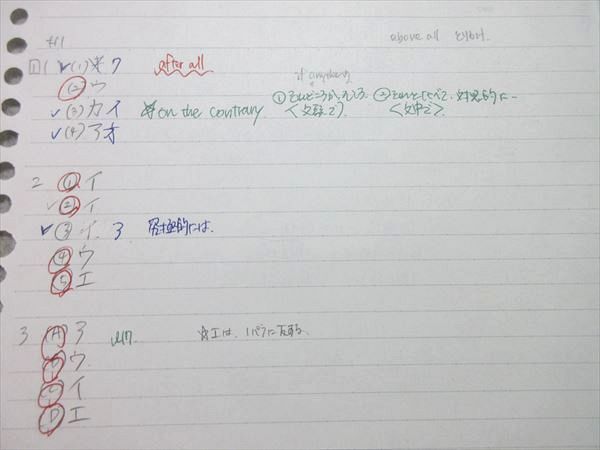 above all とりわけ
1 (1) オ ウ after all
if anything
(2) ウ
(3) カ イ on the contrary ①それどころか, むしろ ②それとくらべて, 対照的に
〈文頭で〉 〈文中で〉
(4) ア オ
2 ① イ
② イ
③ イ 究極的には
④ ウ
⑤ エ
3 (A) ア
ウ
イ
D エ
☆エは、1パラに